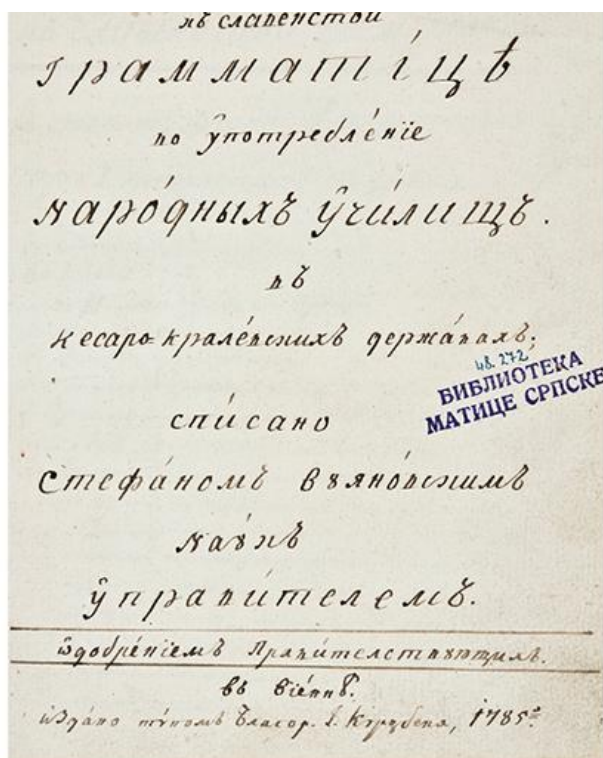 къ славенстѣй
Грамматі́цѣ
по ᲂу҆потребле́нїе
Наро́дныхъ ᲂу҆чи́лищъ.
въ
Кесаро-крале́вскихъ держа́вахъ;
48.272
БИБЛИОТЕКА
МАТИЦЕ СРПСКЕ
спи́сано
Стефа́номъ Вꙋяно́вскимъ
Наꙋкъ
ᲂу҆прави́телемъ.
ѡдобре́нїемъ Прави́телствꙋющихъ.
въ Вїе́ннѣ.
и́здано тѵ́помъ Благор. І. Кꙋрцбека, 1785